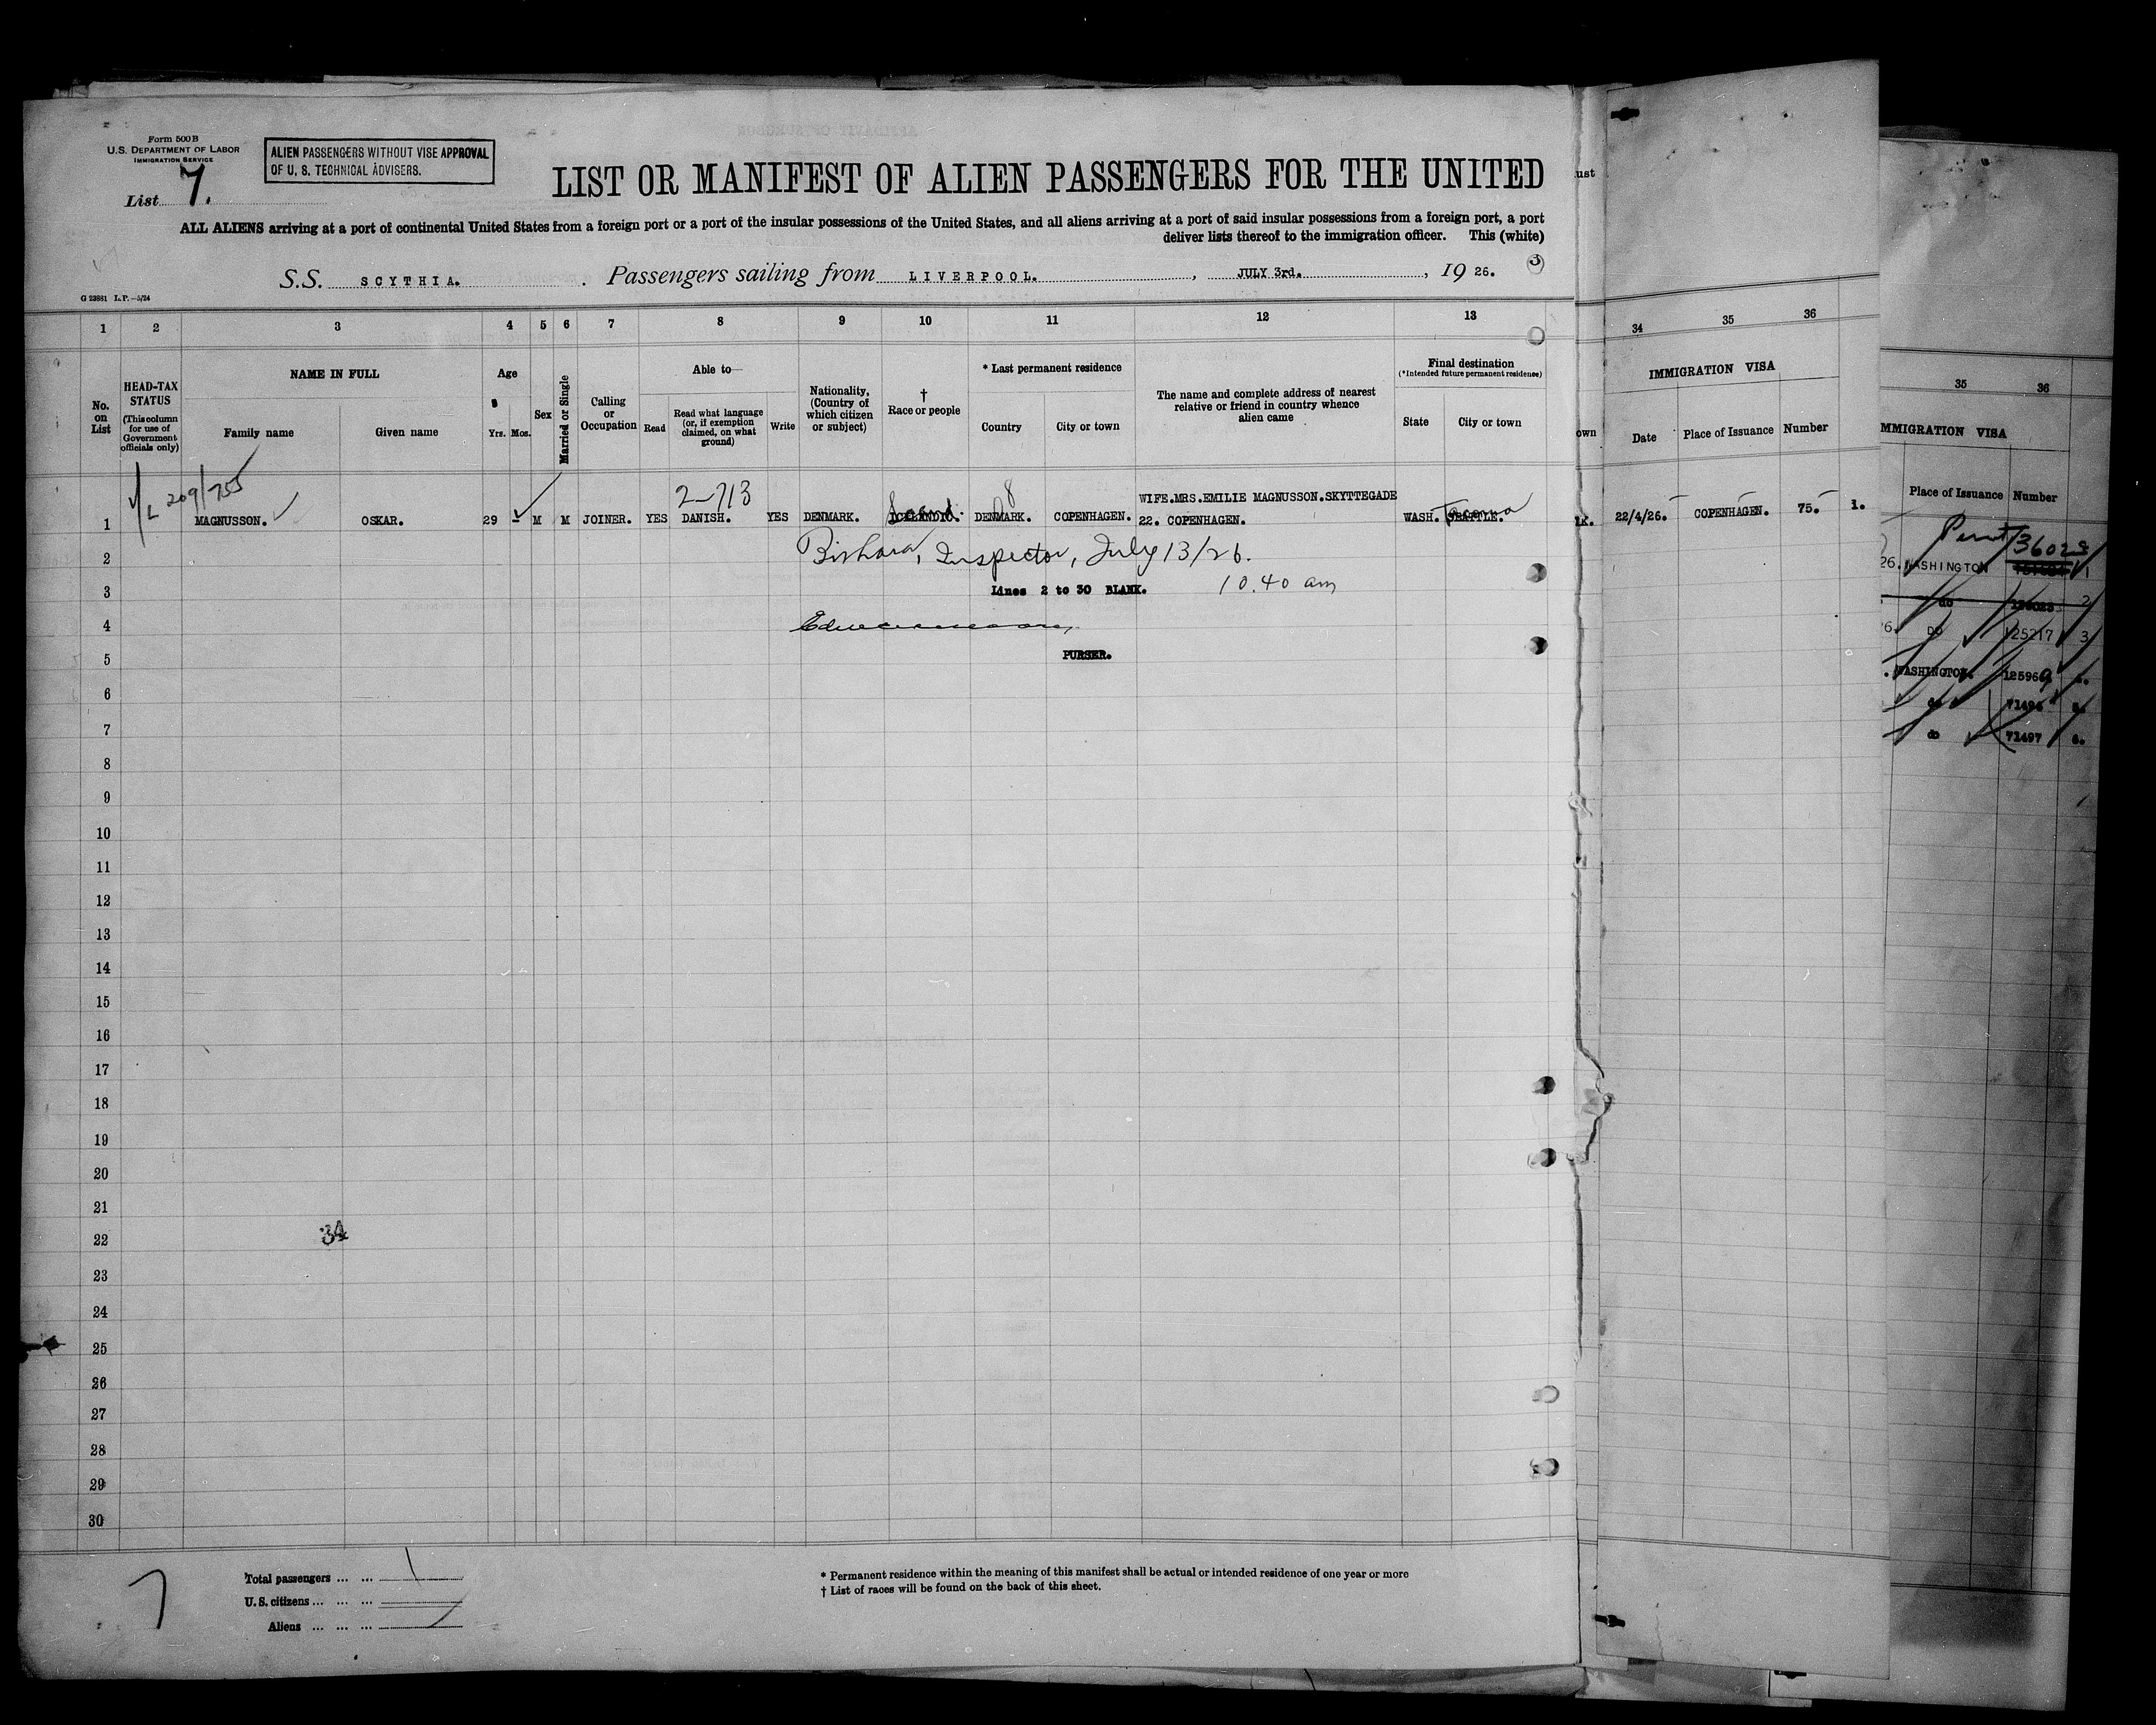 Form 500 B
U.S. DEPARTMENT OF LABOR
IMMIGRATION SERVICE
List 7.
ALIEN PASSENGERS WITHOUT VISE APPROVAL
OF U. S. TECHNICAL ADVISERS.
LIST OR MANIFEST OF ALIEN PASSENGERS FOR THE UNITED
ALL ALIENS arriving at a port of continental United States from a foreign port or a port of the insular possessions of the United States, and all aliens arriving at a port of said insular possessions from a foreign port, a port
deliver lists thereof to the immigration officer. This (white)
S.S. SCYTHIA. Passengers sailing from LIVERPOOL. , JULY 3rd. , 19 26. 3
G 23881 L.P.—5/24
1 2 3 4 5 6 7 8 9 10 11 12 13
No. on List
HEAD-TAX STATUS
(This column for use of Government officials only)
NAME IN FULL
Family name Given name
Age
Yrs. Mos.
Sex
Married or Single
Calling or Occupation
Able to—
Read
Read what language (or, if exemption claimed, on what ground)
Write
Nationality, (Country of which citizen or subject)
† Race or people
* Last permanent residence
Country City or town
The name and complete address of nearest relative or friend in country whence alien came
Final destination
(*Intended future permanent residence)
State City or town
209/755
2-713
8
WIFE.MRS.EMILIE MAGNUSSON.SKYTTEGADE
1 MAGNUSSON. OSKAR. 29 - M M JOINER. YES DANISH. YES DENMARK. ICELANDIC. Scand. DENMARK. COPENHAGEN. 22. COPENHAGEN. WASH. SEATTLE. Tacoma
2 Inspector, July 13/26.
3 Lines 2 to 30 BLANK. 10.40 am
4
5 PURSER.
6
7
8
9
10
11
12
13
14
15
16
17
18
19
20
21
22 34
23
24
25
26
27
28
29
30
Total passengers ... ... 1
U.S. citizens ... ... ...
Aliens ... ... ...
7
* Permanent residence within the meaning of this manifest shall be actual or intended residence of one year or more
† List of races will be found on the back of this sheet.
ust
own
34 35 36
IMMIGRATION VISA
Date Place of Issuance Number
22/4/26. COPENHAGEN. 75. 1.
35 36
MMIGRATION VISA
Place of Issuance Number
26. WASHINGTON 1
do 2
6. DO 125217 3
WASHINGTON. 125969
do 71496
do 71497 6.